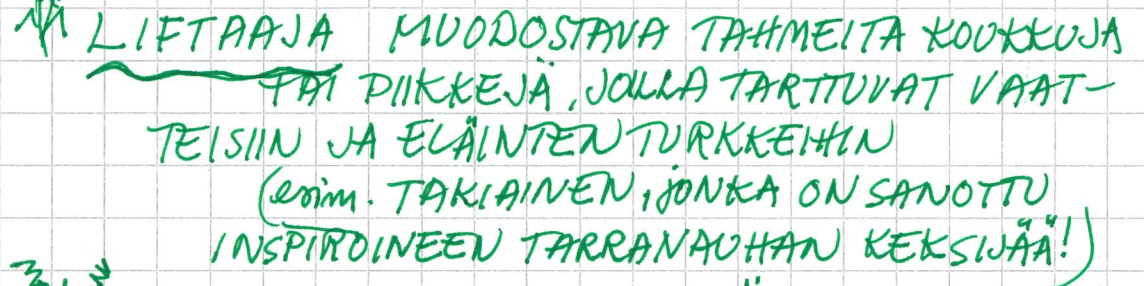 LIFTAAJA MUODOSTAVA TAHMEITA KOUKKUJA
TAI PIIKKEJÄ, JOLLA TARTTUVAT VAAT-
TEISIIN JA ELÄINTEN TURKKEIHIN
(esim. TAKIAINEN, JONKA ON SANOTTU
INSPIROINEEN TARRANAUHAN KEKSIJÄÄ!)